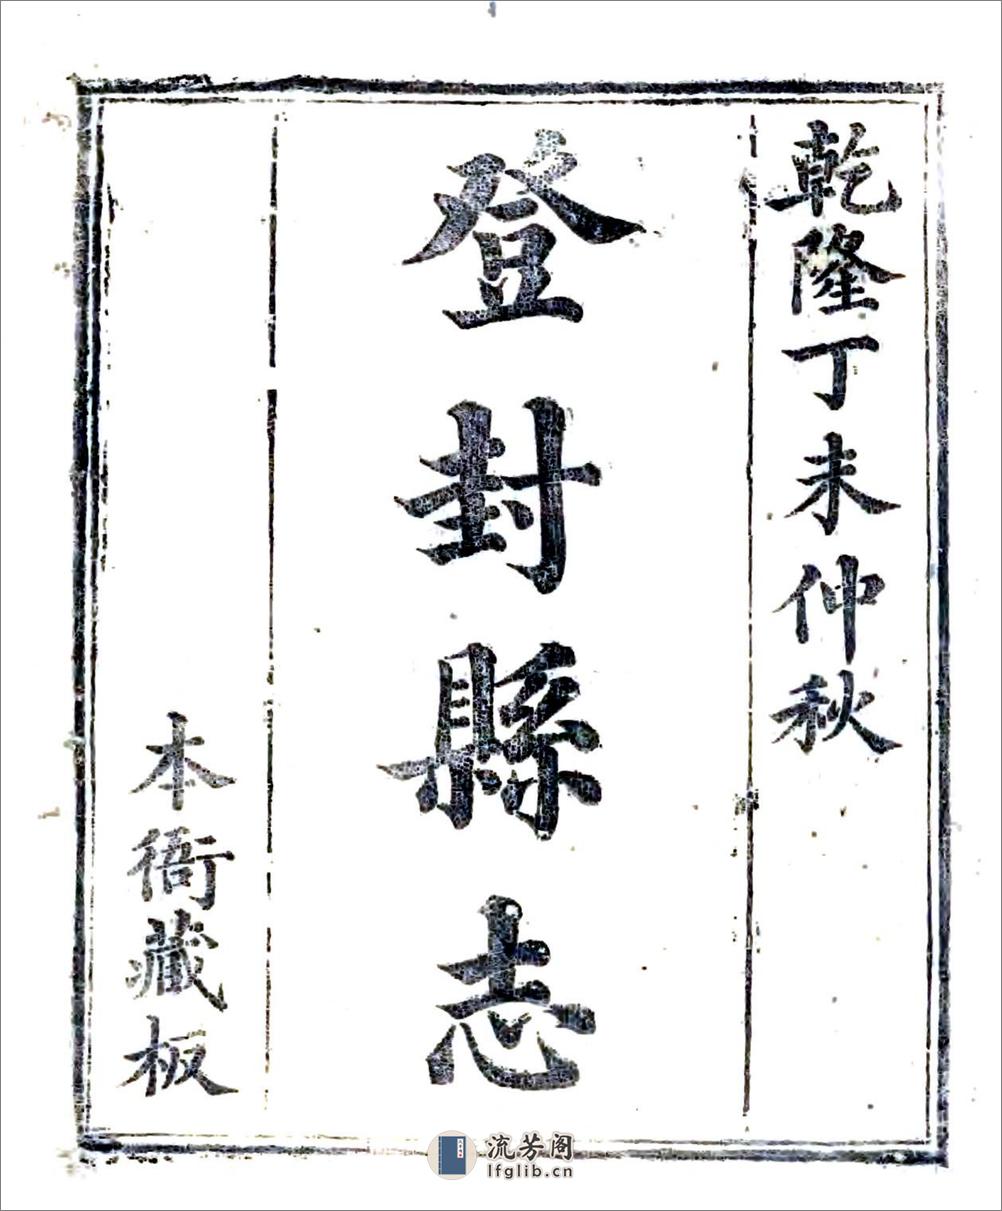 乾隆丁未仲秋
登封縣志
本衙藏板
流芳阁
lfglib.cn